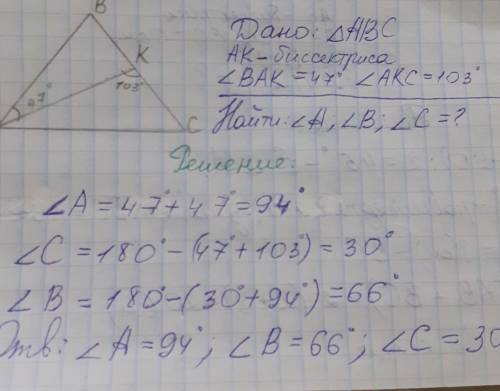 B
Дано: △ABC
K
AK-биссектриса
47°
∠BAK = 47° ∠AKC = 103°
103°
C
Найти: ∠A; ∠B; ∠C = ?
Решение:
∠A = 47° + 47° = 94°
∠C = 180° - (47° + 103°) = 30°
∠B = 180° - (30° + 94°) = 66°
Отв: ∠A = 94°; ∠B = 66°; ∠C = 30